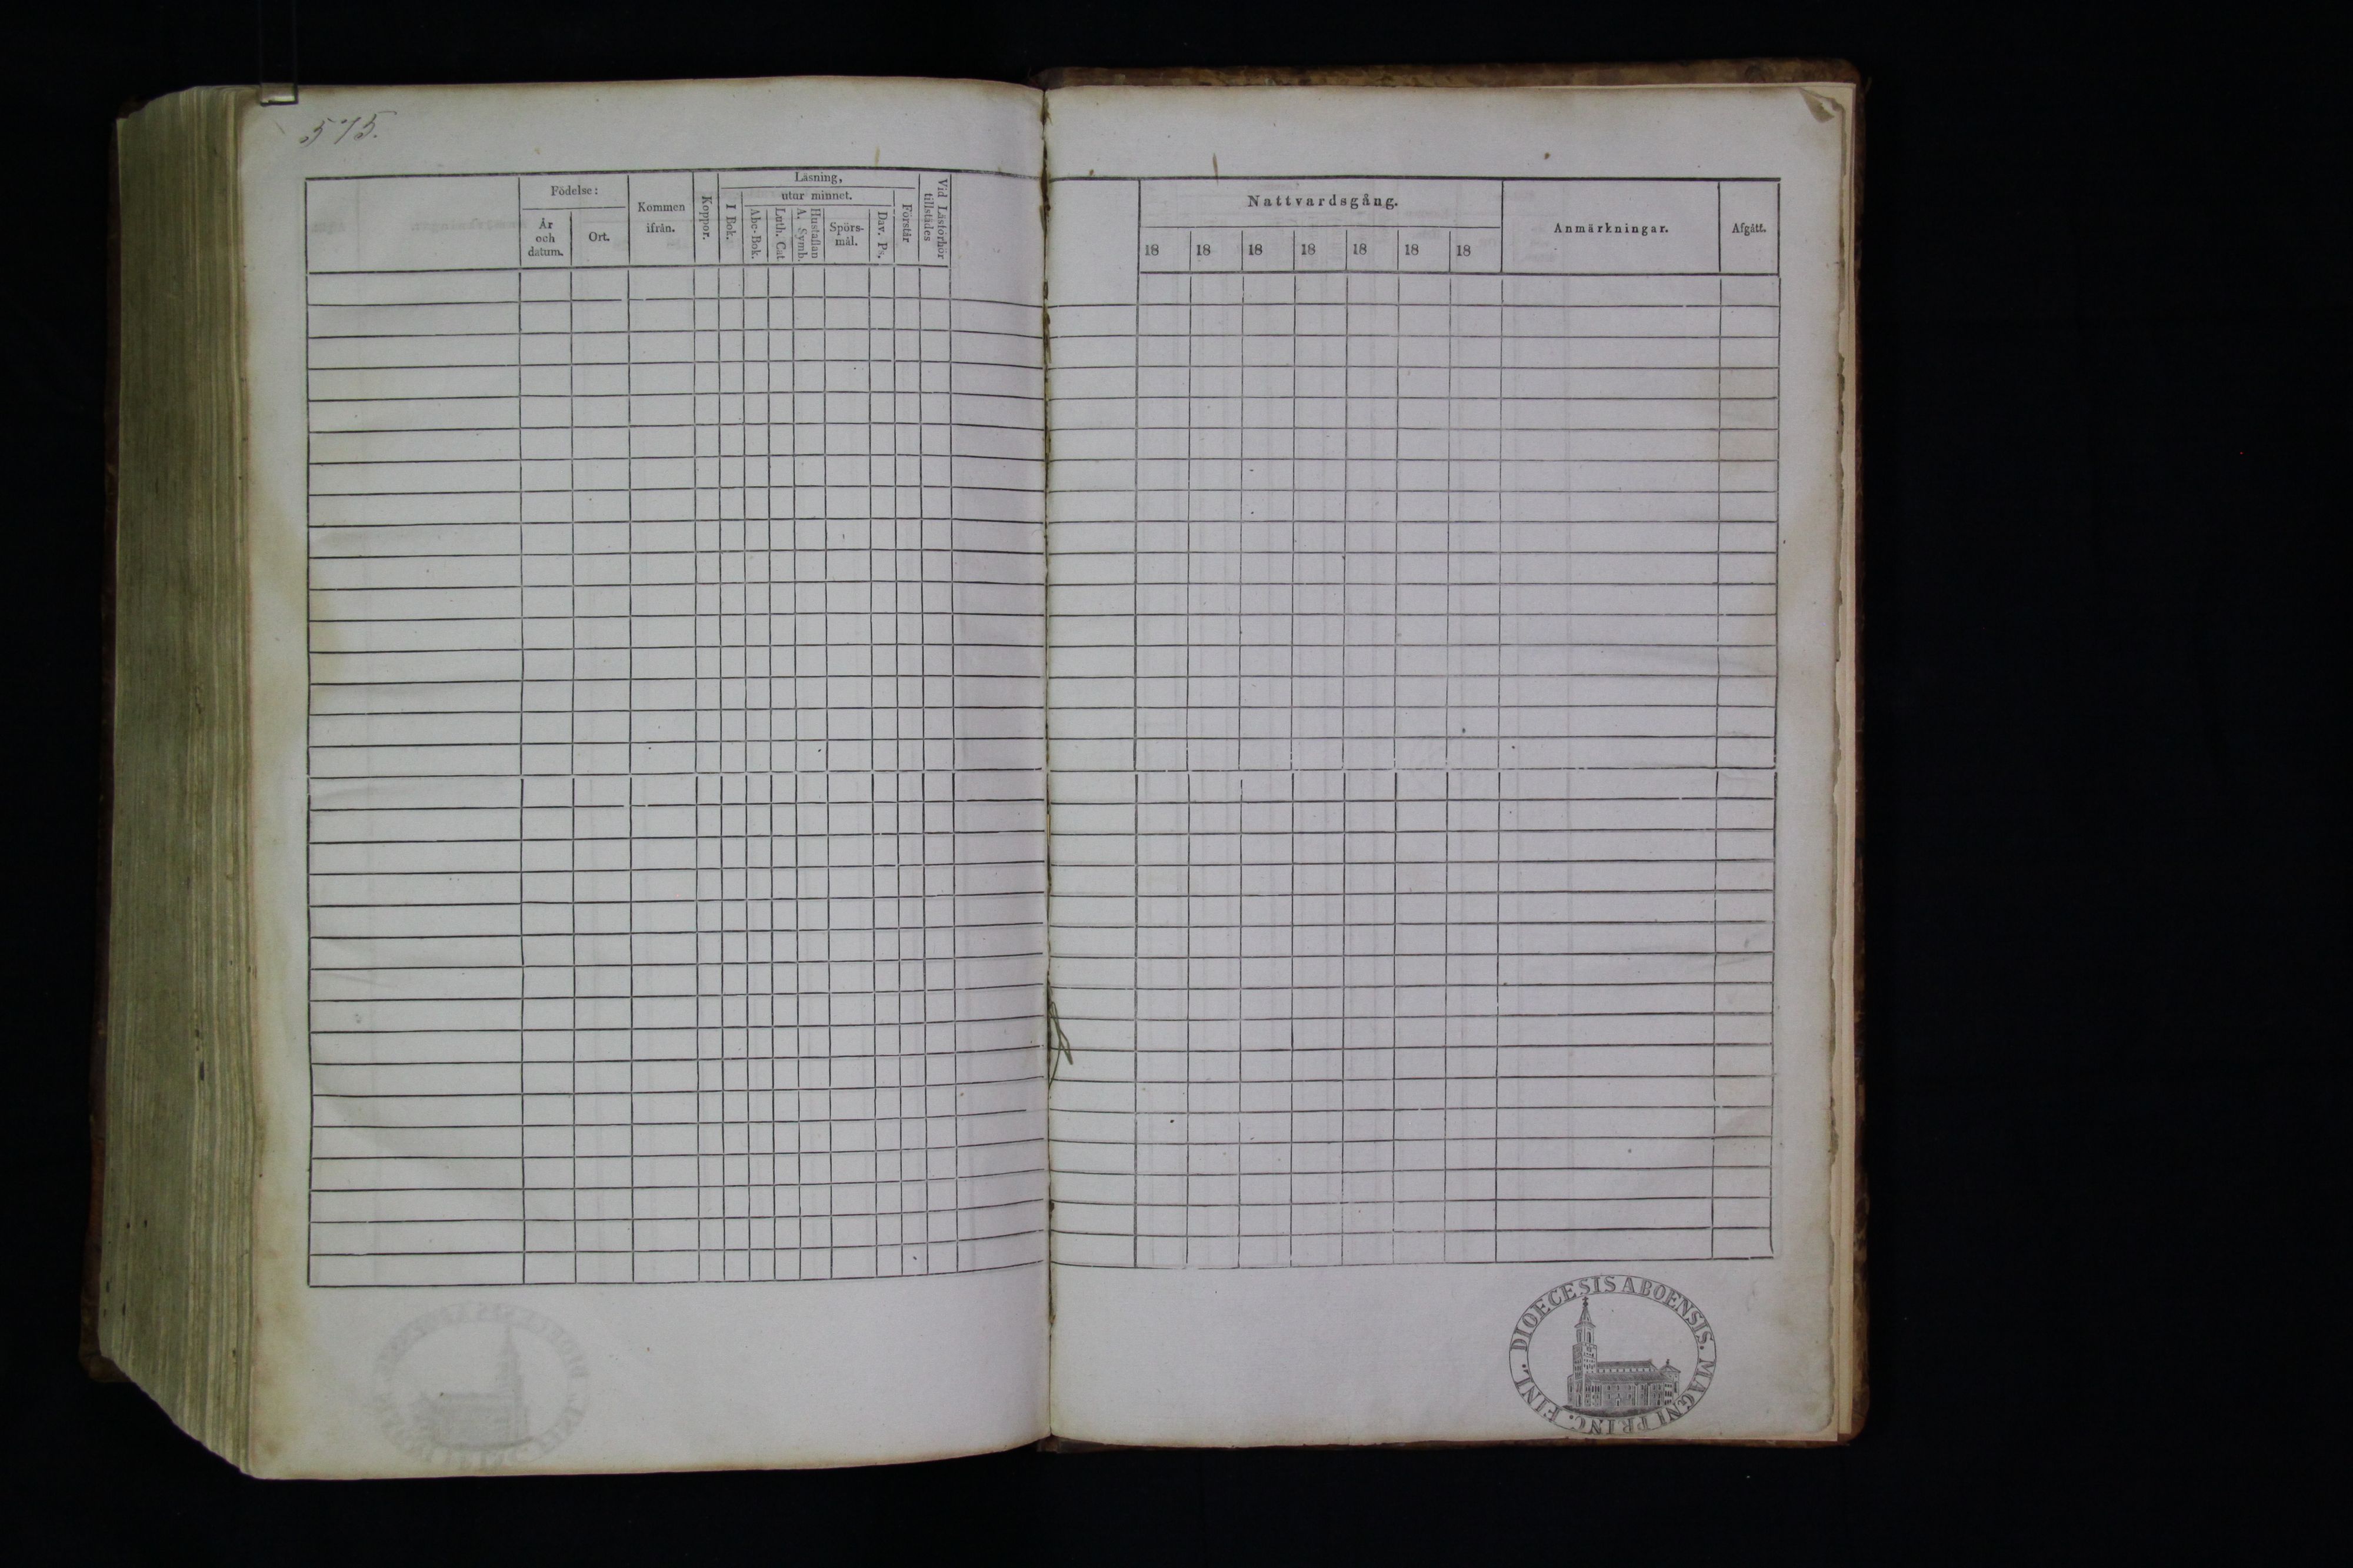 575.
Födelse:
År
och
datum.
Ort.
Kommen
ifrån.
Koppor.
Läsning,
I Bok.
utur minnet.
Abc-Bok.
Luth. Cat.
Hustaflan
A. Symb.
Spörs-
mål.
Dav. Ps.
Förstår
Vid Läsförhör
tillstädes
Nattvardsgång.
18 18 18 18 18 18 18
Anmärkningar.
Afgått.
DIOECESIS ABOENSIS. MAGNI PRINC. FINL.